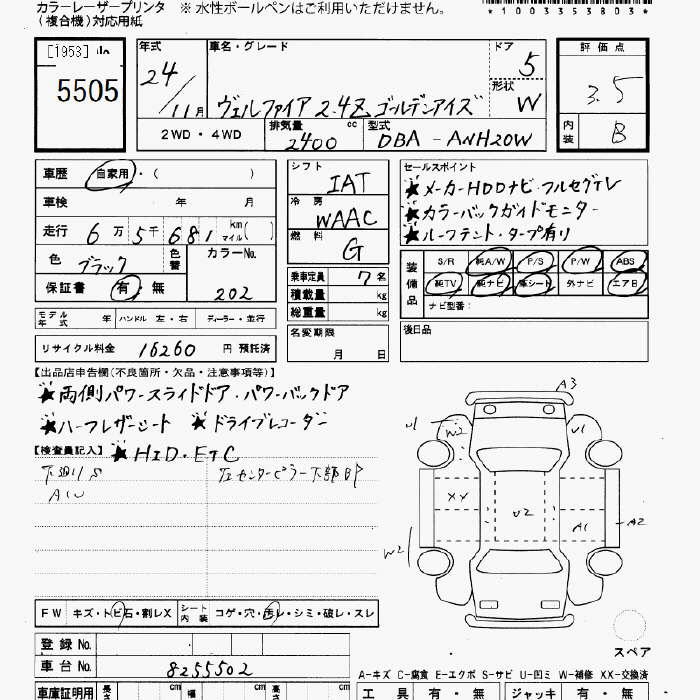 カラーレーザープリンタ ※ 水性ボールペンはご利用いただけません。
(複合機)対応用紙
*100353803*
[1953]
5505
年式 24/11月
車名・グレード ヴェルファイア 2.4Z ゴールデンアイズ
ドア 5
形状 W
評価点 3.5
内装 B
2WD・4WD
排気量 2400 cc
型式 DBA-ANH20W
車歴 自家用・( )
車検 年 月
走行 6万5千681 km マイル( )
色 ブラック 色替 カラーNo. 202
保証書 有・無
モデル年式 年 ハンドル 左・右 ディーラー・並行
リサイクル料金 16260 円 預託済
シフト IAT
冷房 WAAC
燃料 G
乗車定員 7名
積載量 kg
総重量 kg
名変期限 月 日
セールスポイント
★メーカーHDDナビ・フルセグTV
★カラーバックガイドモニター
★ルーフテント・タープ有り
装備品 S/R 純A/W P/S P/W ABS
純TV 純ナビ 革シート 外ナビ エアB
ナビ型番:
後日品
【出品店申告欄(不良箇所・欠品・注意事項等)】
★両側パワースライドドア・パワーバックドア
★ハーフレザーシート ★ドライブレコーダー
【検査員記入】 ★HID・ETC
下廻りS 左センターピラー下部凹
AW
A3
U1
W2
U1
XX
U2
A1
A2
W2
スペア
FW キズ・トビ石・割レX シート内装 コゲ・穴・汚レ・シミ・破レ・スレ
登録No.
車台No. 8255502
A-キズ C-腐食 E-エクボ S-サビ U-凹ミ W-補修 XX-交換済
車庫証明用 長さ cm 幅 cm 高さ cm
工具 有・無 ジャッキ 有・無